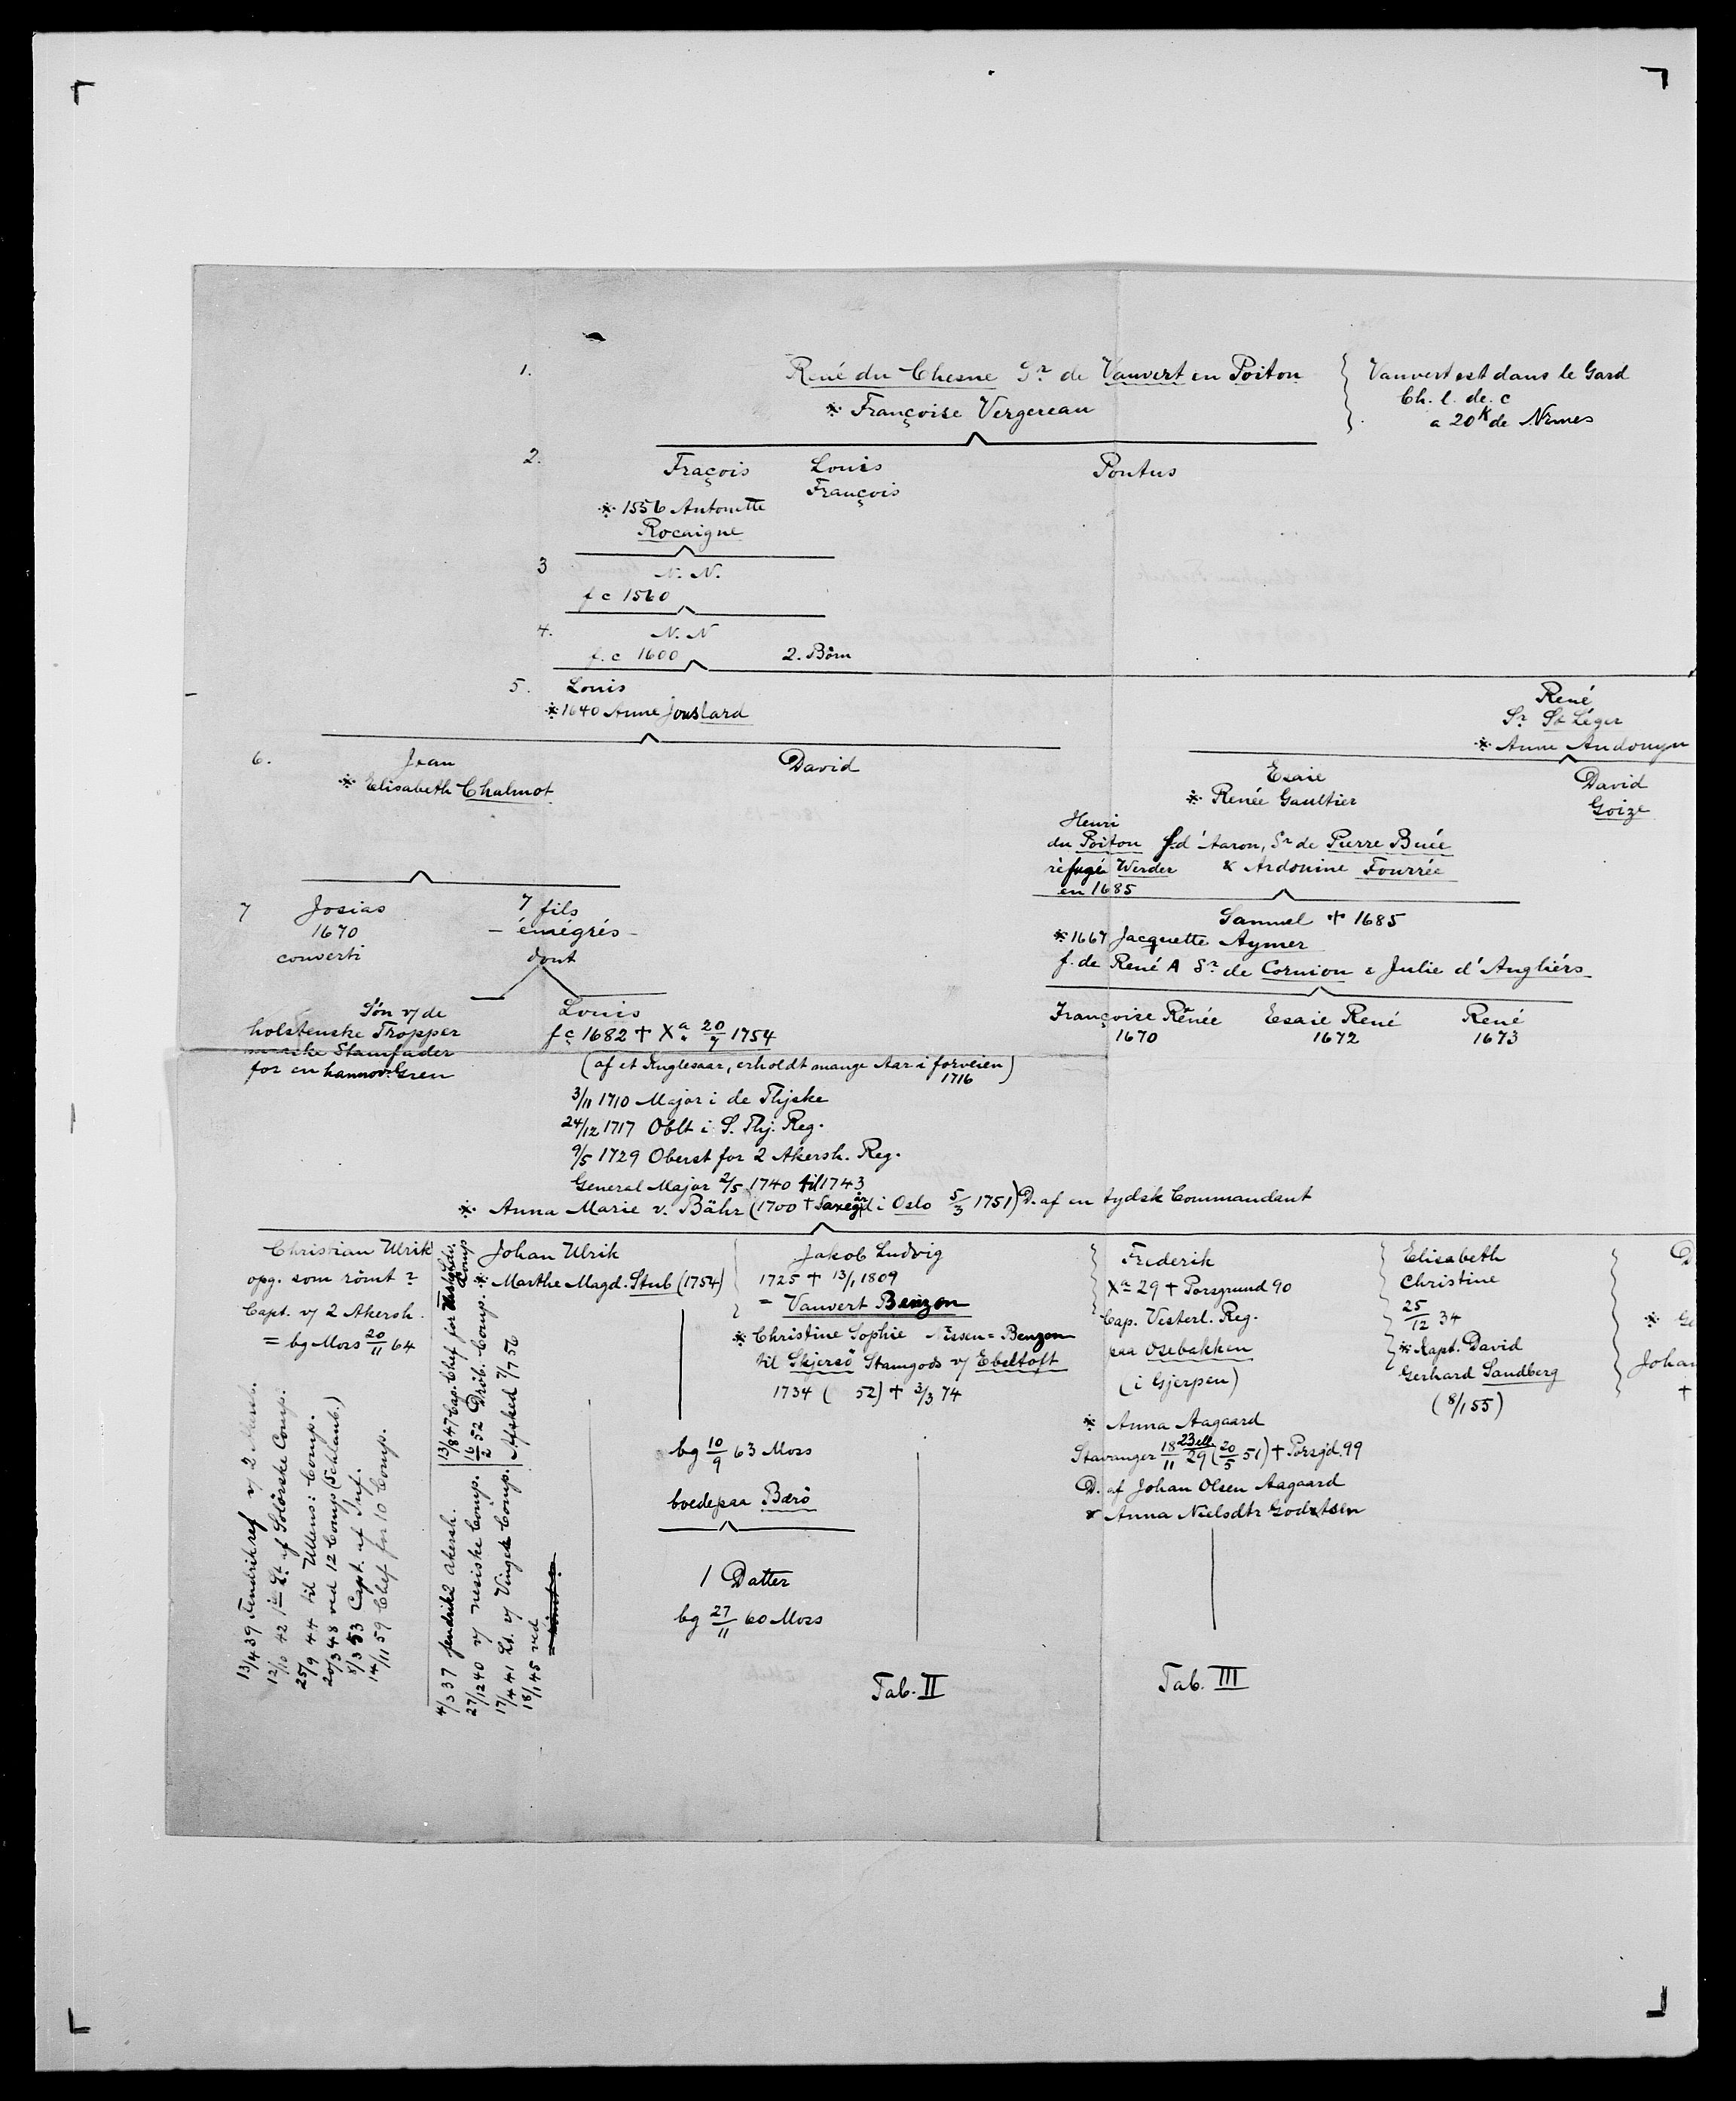 1.
René du Chesne Sr de Vauvert en Poitou
* Françoise Vergereau
Vauvert est dans le Gard
Ch. l. de. c
a 20K de Nimes
2.
Fraçois
* 1556 Antoinette
Rocaigne
Louis
François
Pontus
3
N. N.
f c 1560
4.
N. N
f. c 1600
2. Börn
5.
Louis
* 1640 Anne Jouslard
René
Sr St Léger
* Anne Andouyn
6.
Jean
* Elisabeth Chalmot
David
Esaie
* Renée Gaultier
David
Goize
Henri
du Poitou
réfugé Werder
en 1685
f. d'Aaron, Sr de Pierre Buée
& Ardonine Fourrée
7
Josias
1670
converti
7 fils
- émégrés -
dont
Samuel † 1685
* 1667 Jacquette Aymer
f. de René A Sr de Cornion & Julie d'Angliérs
Françoise Rénée
1670
Esaie René
1672
René
1673
Sön v/ de
holstenske Tropper
Stamfader
for en hannov. Gren
Louis
f c 1682 † Xa 20/7 1754
(af et Knglesaar, erholdt mange Aar i forveien)
1716
3/11 1710 Major i de Thjske
24/12 1717 Oblt i S. Thj. Reg.
9/5 1729 Oberst for 2 Akersh. Reg.
General Major 2/5 1740 til 1743
* Anna Marie v. Bähr (1700 † Saxegård i Oslo 5/3 1751) D. af en tydsk Commandant
Christian Ulrik
opg. som römt ?
Capt. v/ 2 Akersh.
= bg Moss 20/11 64
13/4 39 Fendrik ref v/ 2 Akersh.
12/10 42 1ste Lt. af Solörske Comp.
25/9 44 til Ullens: Comp.
20/3 48 ved 12 Comp (Schlamb.)
8/3 53 Capt. af Inf.
14/11 59 Chef for 10 Comp.
Johan Ulrik
* Marthe Magd. Stub (1754)
4/3 37 fendrik 2 Akersh.
27/12 40 v/ nesiske Comp.
17/4 41 Lt. v/ Vinger Comp.
18/1 45 ved
13/8 47 Cap. Chef for
Comp
16/2 52 Dröb. Comp.
Afsked 7/7 56
Jakob Ludvig
1725 † 13/1 1809
= Vauvert Benzon
* Christine Sophie Nissen = Benzon
til Skjersö Stamgods v/ Ebeltoft
1734 ( 52) † 3/3 74
bg 10/9 63 Moss
boede paa Barö
1 Datter
bg 27/11 60 Moss
Tab. II
Frederik
Xa 29 † Porsgrund 90
Cap. Vesterl. Reg.
paa Osebakken
(i Gjerpen)
* Anna Aagaard
Stavanger 18/11 23 ell 29 (20/5 51) † Porsgd. 99
D. af Johan Olsen Aagaard
& Anna Nielsdtr Godtzen
Tab. III
Elisabeth
Christine
25/12 34
* Kapt. David
Gerhard Sandberg
(8/1 55)
D
*
Johan
†